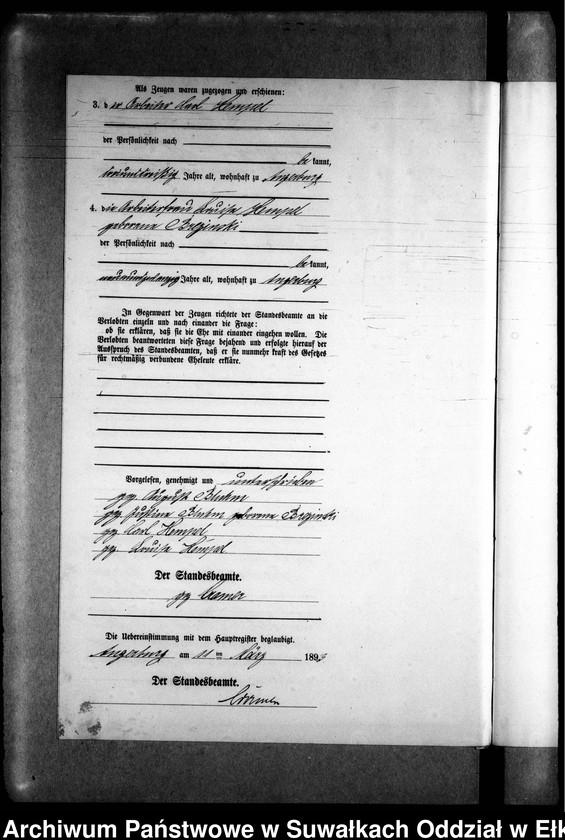 Als Zeugen waren zugezogen und erschienen:
3. der Arbeiter Carl Hempel
der Persönlichkeit nach
bekannt,
dreiunddreißig Jahre alt, wohnhaft zu Angerburg
4. die Arbeiterfrau Louise Hempel
geborene Brzinski
der Persönlichkeit nach
bekannt,
Jahre alt, wohnhaft zu Angerburg
In Gegenwart der Zeugen richtete der Standesbeamte an die
Verlobten einzeln und nach einander die Frage:
ob sie erklären, daß sie die Ehe mit einander eingehen wollen. Die
Verlobten beantworteten diese Frage bejahend und erfolgte hierauf der
Ausspruch des Standesbeamten, daß er sie nunmehr kraft des Gesetzes
für rechtmäßig verbundene Eheleute erkläre.
Vorgelesen, genehmigt und unterschrieben
gz. August Bluhm
gz. Justine Bluhm geborene Brzinski
gz. Carl Hempel
gz. Louise Hempel
Der Standesbeamte.
gz.
Die Uebereinstimmung mit dem Hauptregister beglaubigt.
Angerburg am 11ten März 189
Der Standesbeamte.
Archiwum Państwowe w Suwałkach Oddział w Ełk